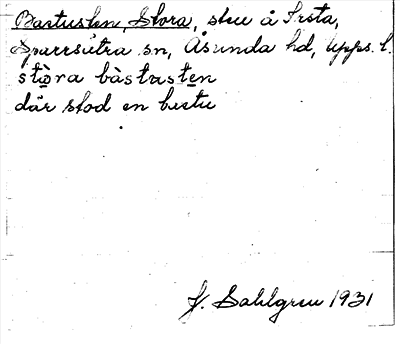 Bastusten, Stora, sten å Frsta,
Sparrsätra sn, Åsunda hd, Upps. l.
stòra bàstusten
där stod en bastu
J. Sahlgren 1931